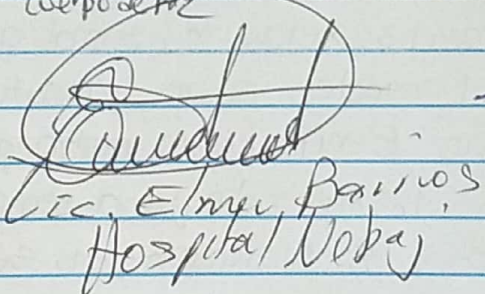 Lic. Elmer Barrios
Hospital Nebaj